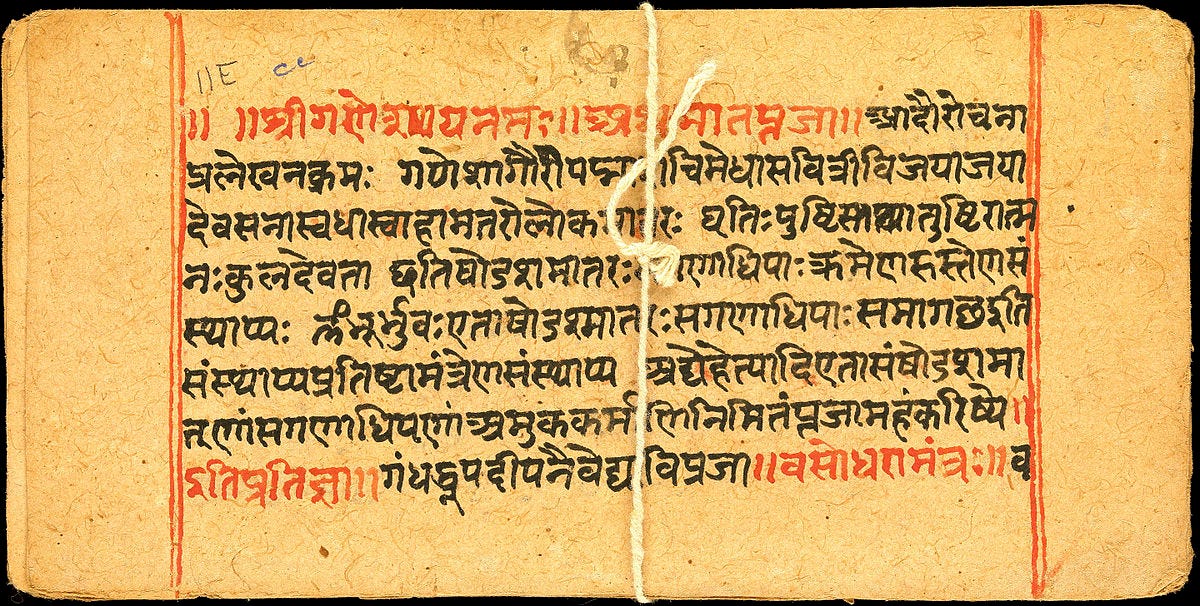 ||E cc
॥ ॥श्रीगणेशायनमः॥अथ मातपूजा॥आदौरोचना
प्रलेखनक्रमः गणेशागौरीपद्मा चिमेधासवित्रीविजयाजया
देवसेनास्वधास्वाहामतरोलोक धृतिःपुष्टि तुष्टिरात्म
नःकुलदेवता षोडशमातरः णाधिपाःक्रमेणहस्तेणसं
स्थाप्यः भूर्भुवःएताषोडशमातरःसगणाधिपाःसमागछइति
संस्थाप्यप्रतिष्टामंत्रेणसंस्थाप्य अद्येहेत्यादिएतासंषोडशमा
तृणांसगणाधिपणांअमुककर्मणिनिमितंपूजामहंकरिष्ये॥
इतिप्रतिज्ञा॥गंधधूपदीपनैवेद्य विपूजा॥वसोधरामंत्रः॥व